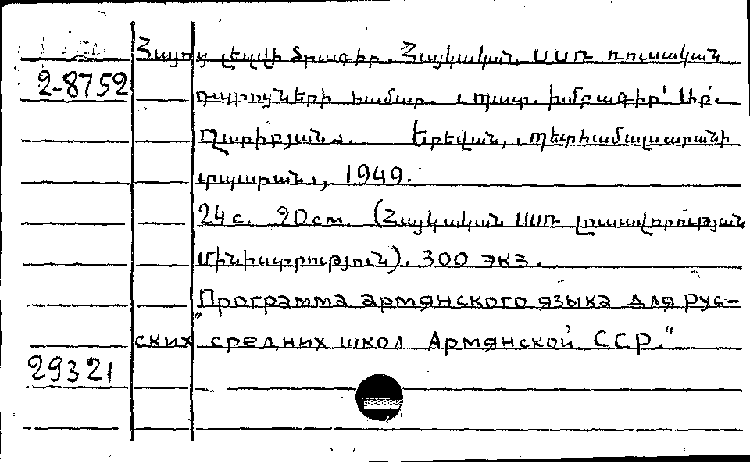 Հայոց լեզվի ծրագիր. Հայկական ՍՍՌ ռուսական
2-8752
դպրոցների համար. Պատ. խմբագիր՝ Ար.
Ղարիբյան. Երևան, Պետհամալսարանի
տպարան, 1949.
24 с. 20 см. (Հայկական ՍՍՌ լուսավորության
մինիստրություն). 300 экз.
„Программа армянского языка для рус-
ских средних школ Армянской ССР."
29321